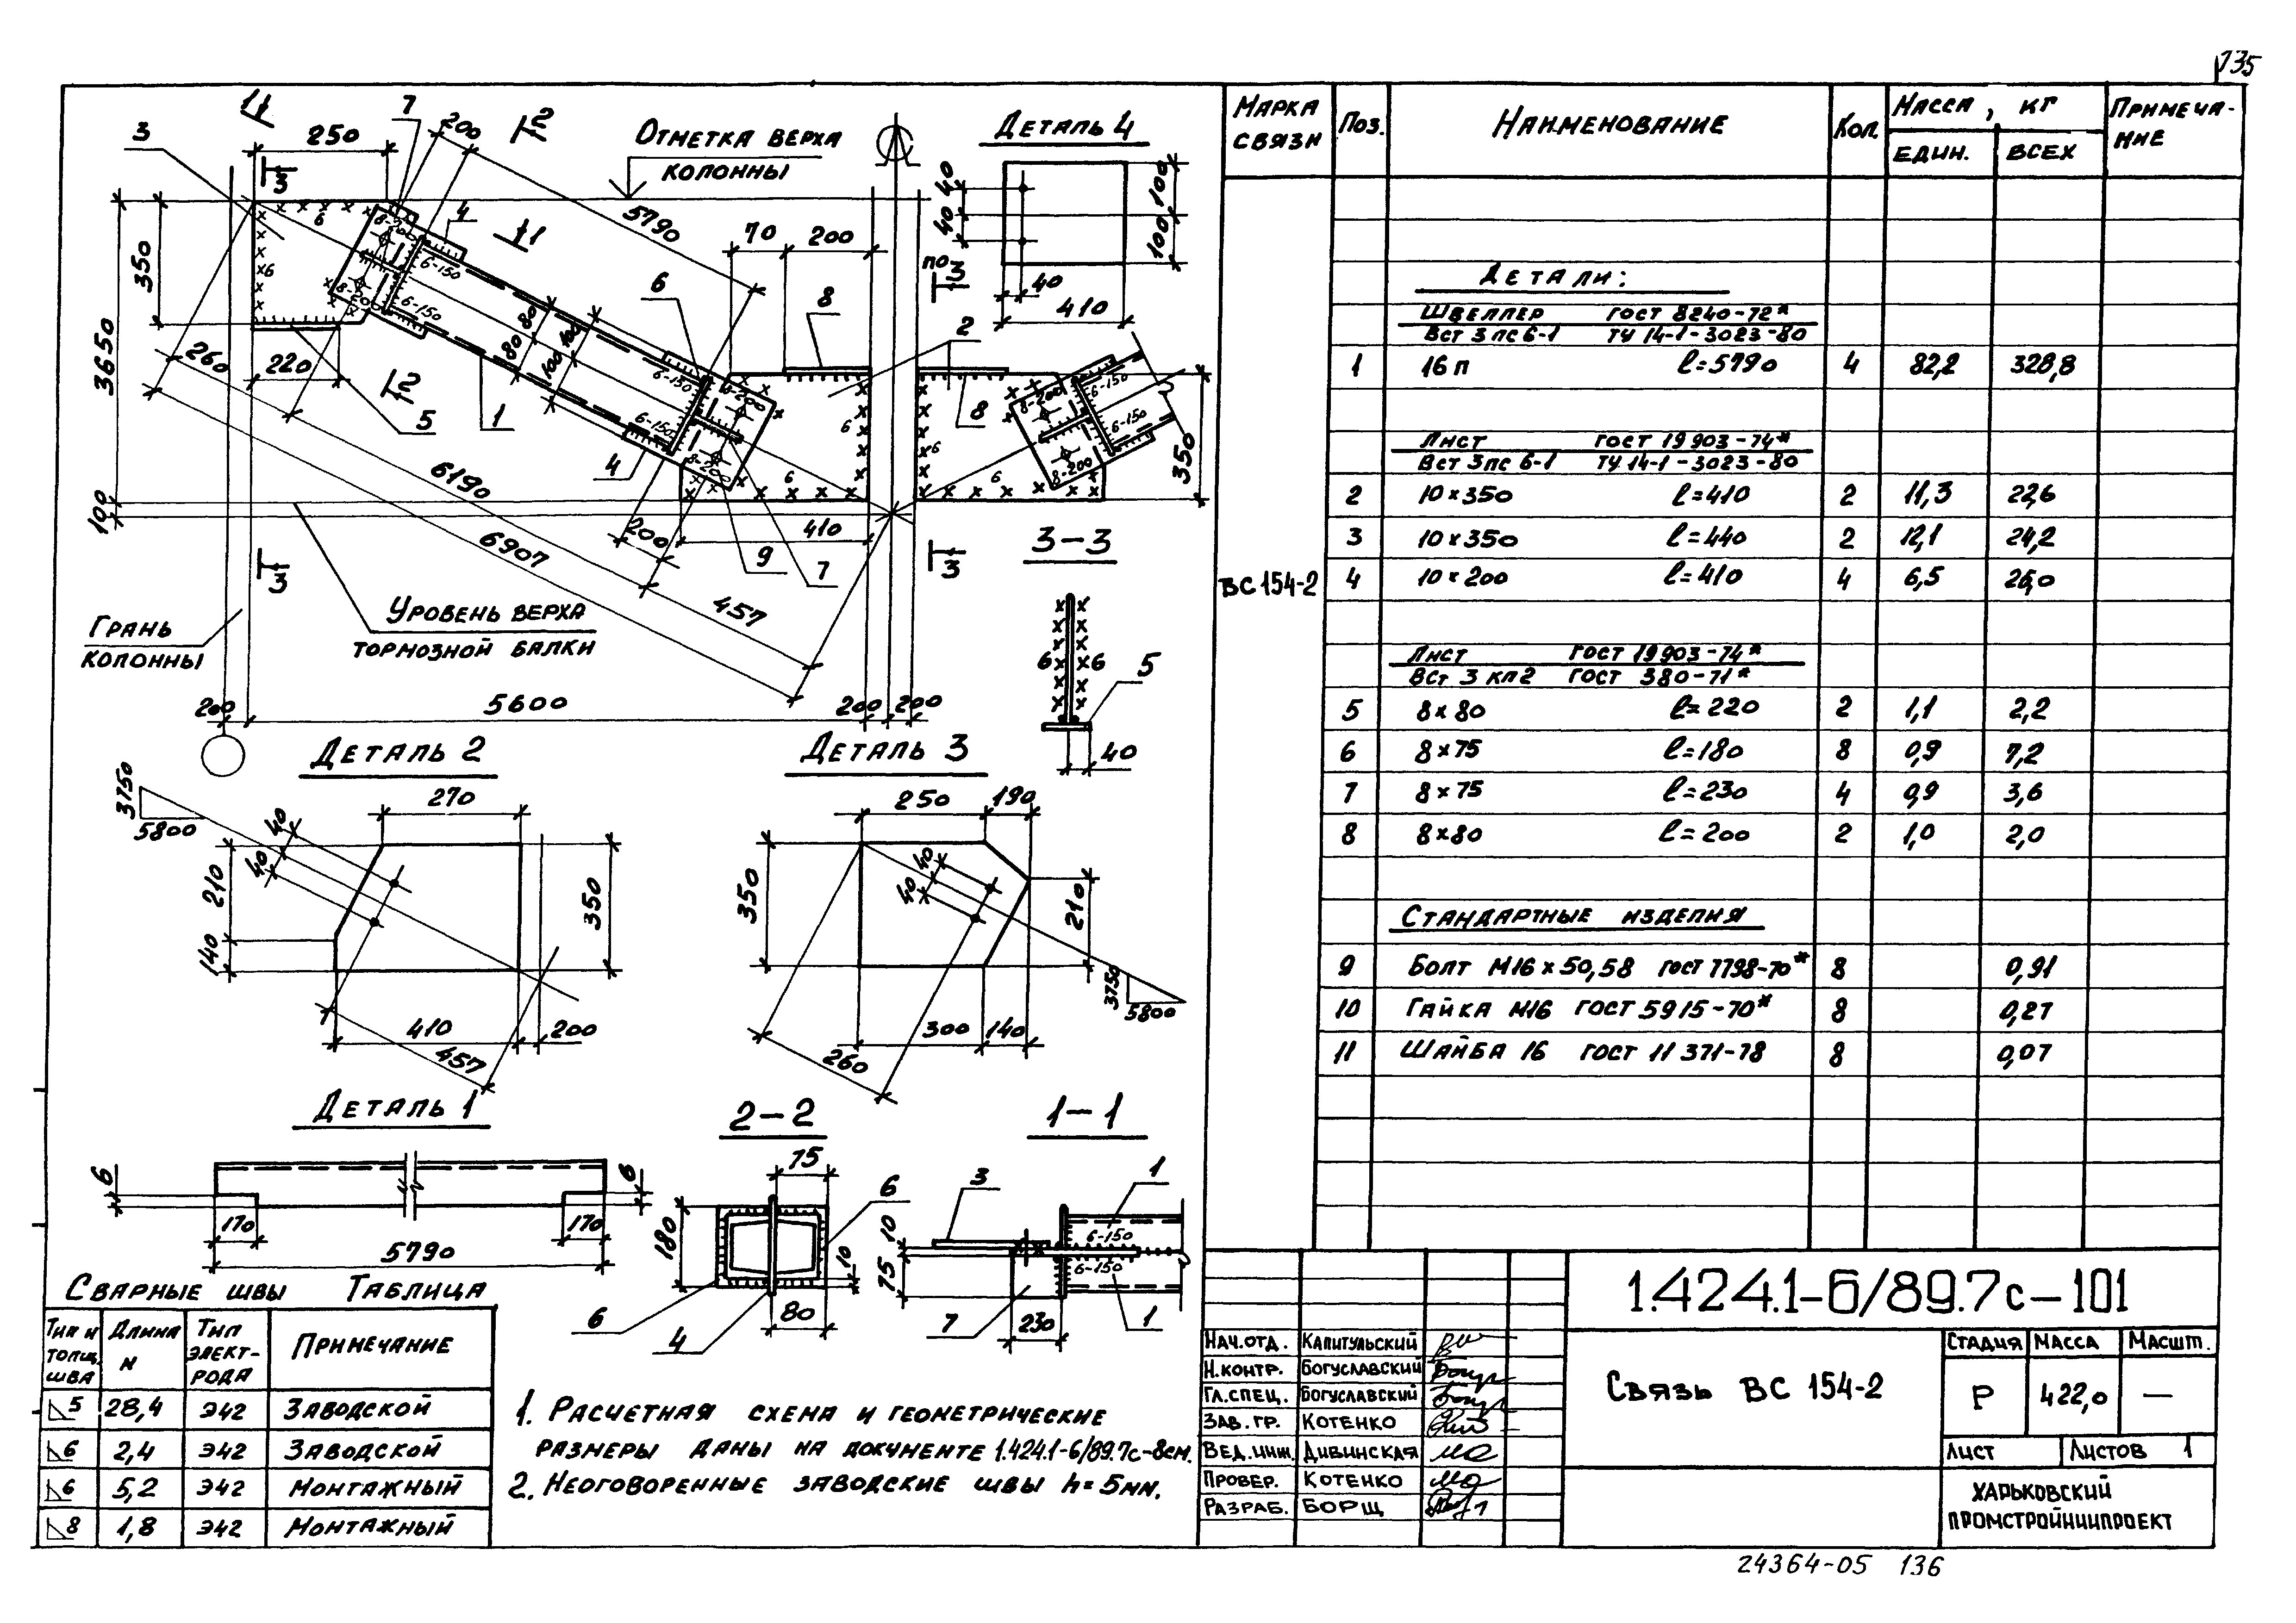 135
1 1
7
200
2
3
250
3
Отметка верха
колонны
Деталь 4
40
40
100
100
40
410
6
8-200
4
1
5790
70
200
по 3
350
6
6-150
8-200
6-150
6
8
2
3650
80
80
100
100
260
220
2
5
1
6-150
8-200
6-150
8-200
4
6
6
8
6
6
8-200
6-150
6-150
8-200
350
100
6190
6907
200
410
9
7
457
3
3
3-3
6 6
5
40
Грань
колонны
Уровень верха
тормозной балки
200
5600
200 200
Деталь 2
3750
5800
270
40
40
210
140
350
410
200
457
Деталь 3
250
190
350
40
40
210
3750
5800
300
140
260
Деталь 1
6
6
170
170
5790
2-2
75
180
6
10
80
6
4
1-1
3
1
10
75
6-150
6-150
7
230
1
Сварные швы Таблица
Тип и толщ. шва | Длина м | Тип электрода | Примечание
5 28,4 Э42 Заводской
6 2,4 Э42 Заводской
6 5,2 Э42 Монтажный
8 1,8 Э42 Монтажный
1. Расчетная схема и геометрические
размеры даны на документе 1.424.1-6/89.7с-8см.
2. Неоговоренные заводские швы h=5мм.
Марка связи | Поз. | Наименование | Кол. | Масса, кг | Примечание
един. всех
Детали:
Швеллер ГОСТ 8240-72*
Вст 3 пс 6-1 ТУ 14-1-3023-80
1 16 п ℓ=5790 4 82,2 328,8
Лист ГОСТ 19903-74*
Вст 3пс 6-1 ТУ 14-1-3023-80
2 10×350 ℓ=410 2 11,3 22,6
3 10×350 ℓ=440 2 12,1 24,2
ВС 154-2 4 10×200 ℓ=410 4 6,5 26,0
Лист ГОСТ 19903-74*
Вст 3 кп2 ГОСТ 380-71*
5 8×80 ℓ=220 2 1,1 2,2
6 8×75 ℓ=180 8 0,9 7,2
7 8×75 ℓ=230 4 0,9 3,6
8 8×80 ℓ=200 2 1,0 2,0
Стандартные изделия
9 Болт М16×50,58 ГОСТ 7798-70* 8 0,91
10 Гайка М16 ГОСТ 5915-70* 8 0,27
11 Шайба 16 ГОСТ 11371-78 8 0,07
1.424.1-6/89.7с-101
Нач.отд. Капитульский
Н.контр. Богуславский
Гл.спец. Богуславский
Зав.гр. Котенко
Вед.инж. Дивинская
Провер. Котенко
Разраб. Борщ
Связь ВС 154-2
Стадия Масса Масшт.
Р 422,0 —
Лист Листов 1
Харьковский
Промстройниипроект
24364-05 136